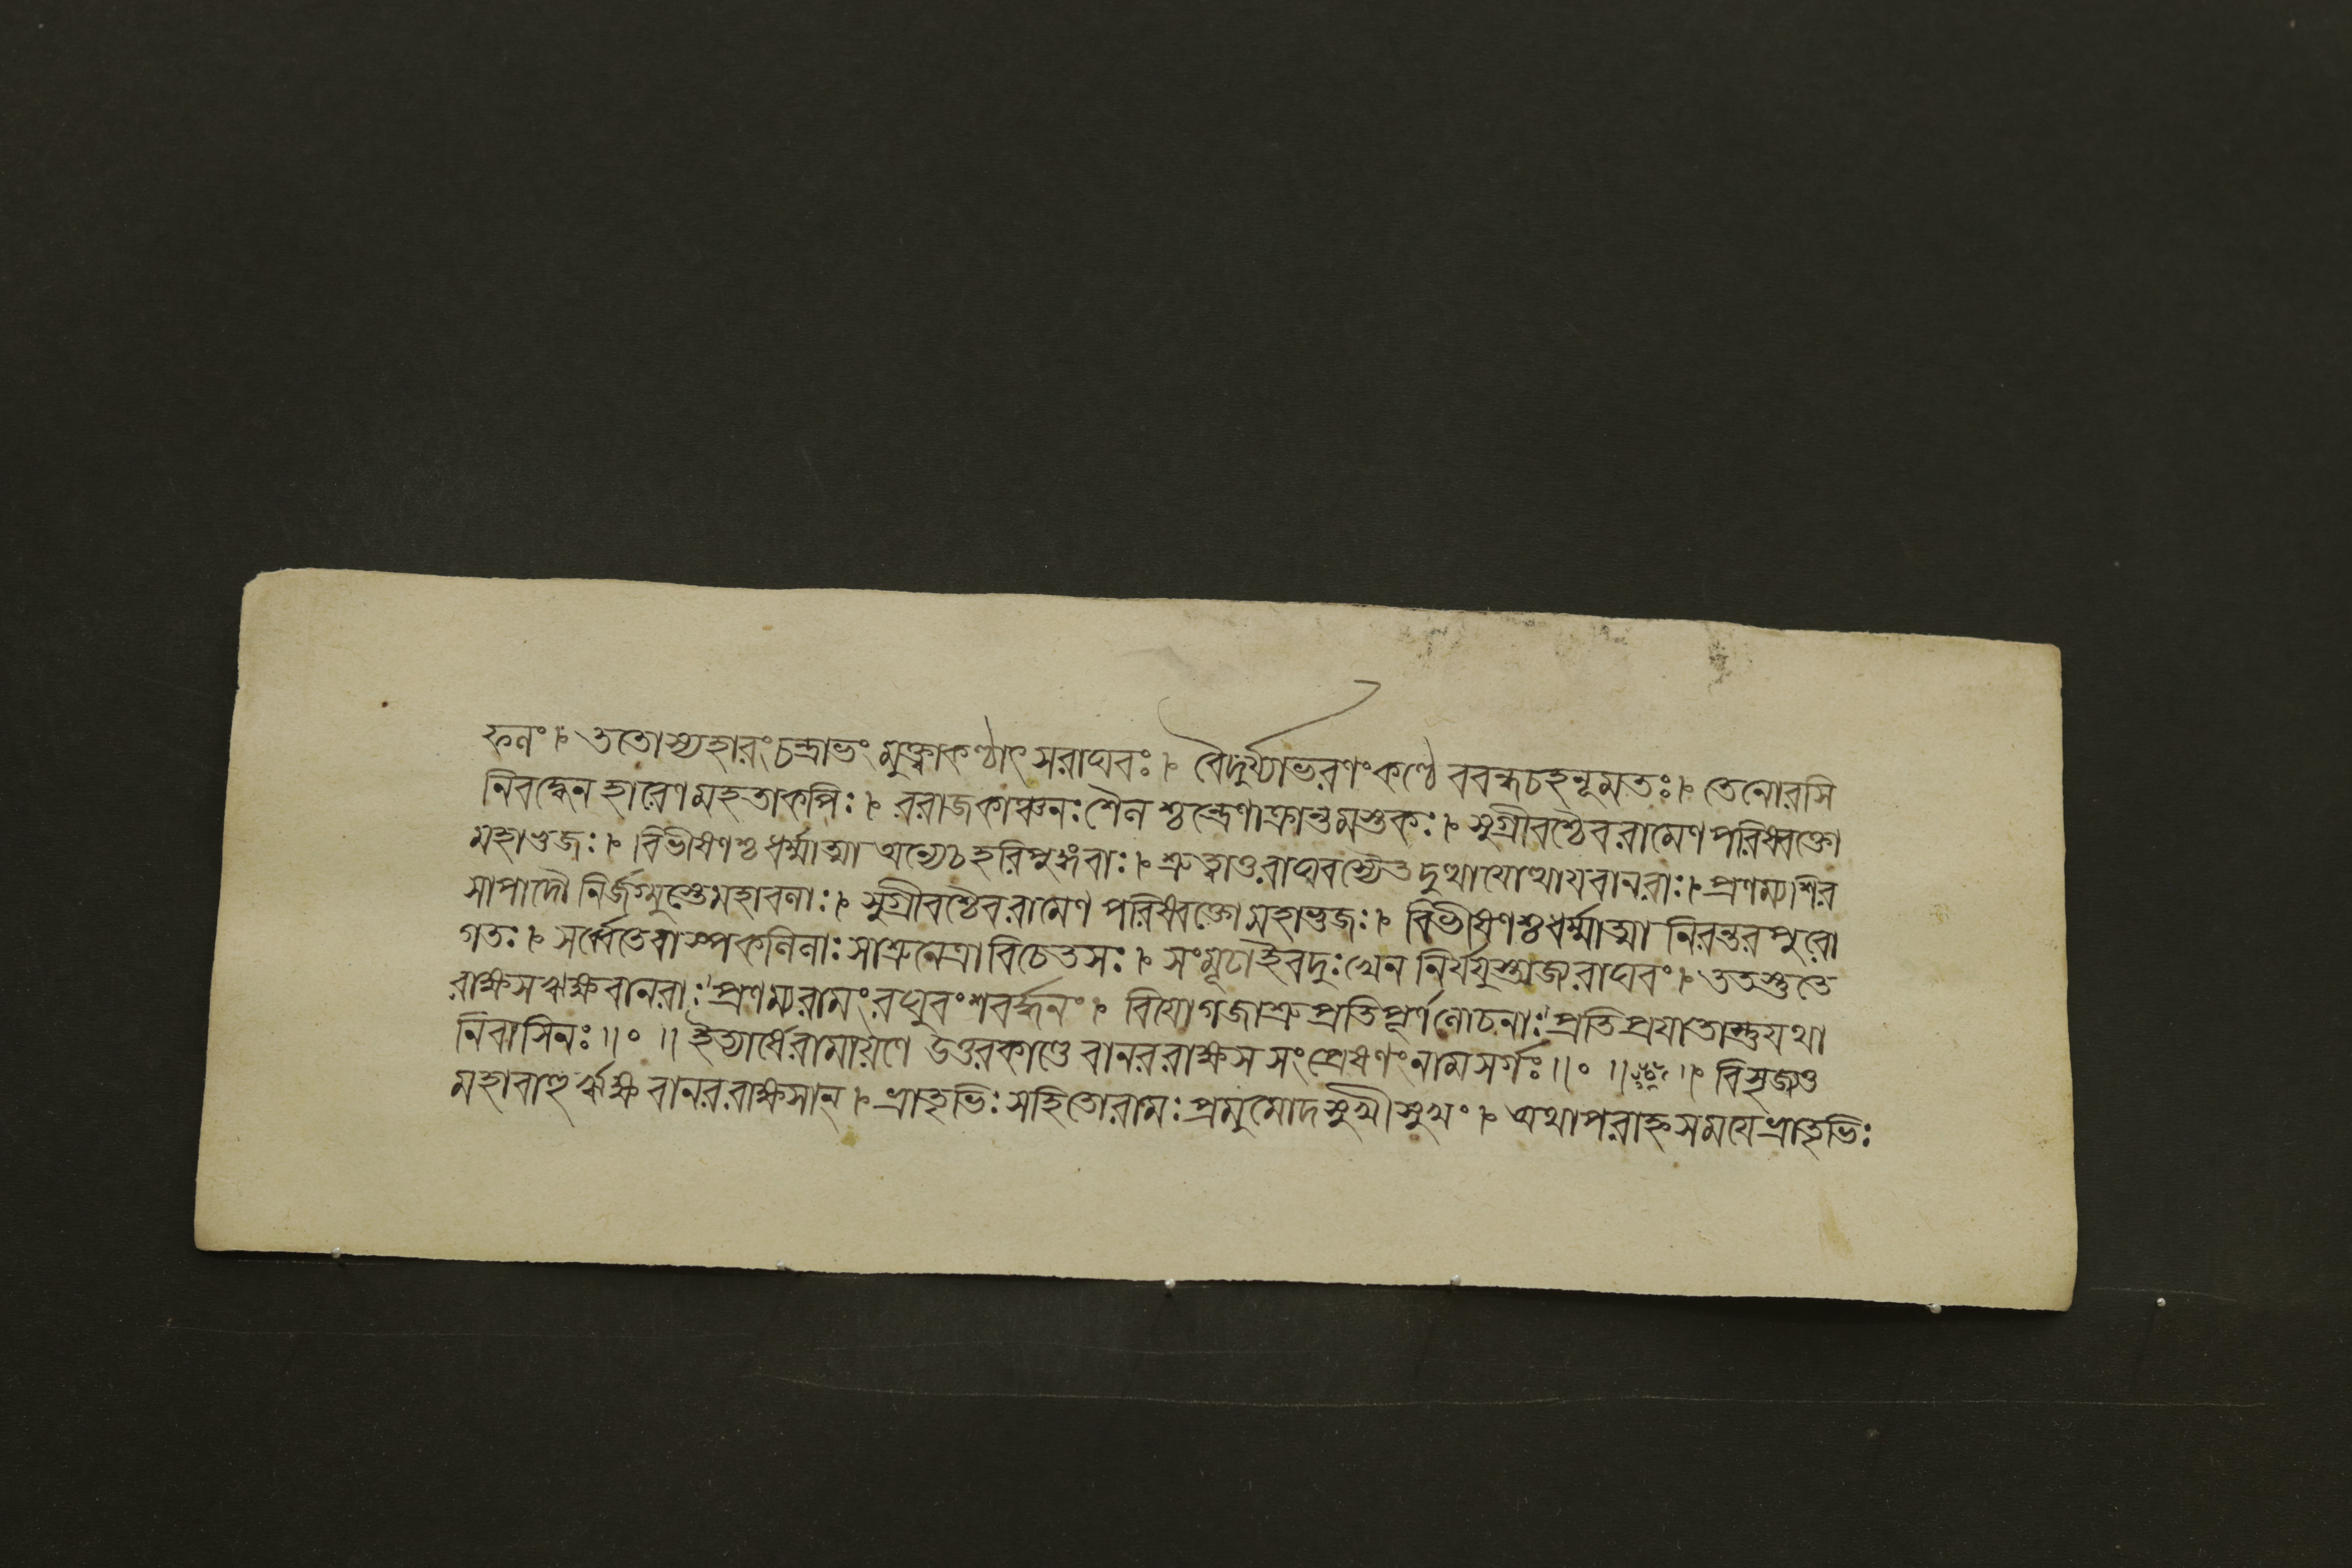 ফলং। ততোস্যহারংচন্দ্রাভং মুক্ত্বাকণ্ঠাৎ সরাঘবঃ। বৈদুর্য্যাভরণংকণ্ঠে ববন্ধচহনূমতঃ। তেনোরসি
নিবদ্ধেন হারেণমহতাকপিঃ। ররাজকাঞ্চনঃশৈল শ্চন্দ্রেণাক্রান্তমস্তকঃ। সুগ্রীবশ্চৈবরামেণ পরিষ্বক্তো
মহাভুজঃ। বিভীষণশ্চ ধর্ম্মাত্মা অন্যেচহরিপুঙ্গবাঃ। শ্রুত্বাতুরাঘবস্যৈত দুত্থাযোত্থাযবানরাঃ। প্রণম্যশির
সাপাদৌ নির্জগ্মুস্তেমহাবলাঃ। সুগ্রীবশ্চৈবরামেণ পরিষ্বক্তো মহাভুজঃ। বিভীষণশ্চধর্ম্মাত্মা নিরন্তরপুরো
গতঃ। সর্ব্বেতেবাস্পকলিলাঃ সাশ্রুনেত্রাবিচেতসঃ। সংমূঢাইবদুঃখেন নির্যযুস্ত্যজ্যরাঘবং। ততস্তুতে
রাক্ষসঋক্ষবানরাঃ প্রণম্যরামংরঘুবংশবর্দ্ধনং। বিযোগজাশ্রুপ্রতিপূর্ণলোচনাঃ প্রতিপ্রযাতাস্তুযথা
নিবাসিনঃ॥०॥ ইত্যার্ষেরামায়ণে উত্তরকাণ্ডে বানররাক্ষস সংপ্রেষণংনামসর্গঃ॥०॥ ॥ বিসৃজ্যতু
মহাবাহুর্ঋক্ষ বানররাক্ষসান্। ভ্রাতৃভিঃ সহিতোরামঃ প্রমুমোদসুখীসুখং। অথাপরাহ্নসময়েভ্রাতৃভিঃ